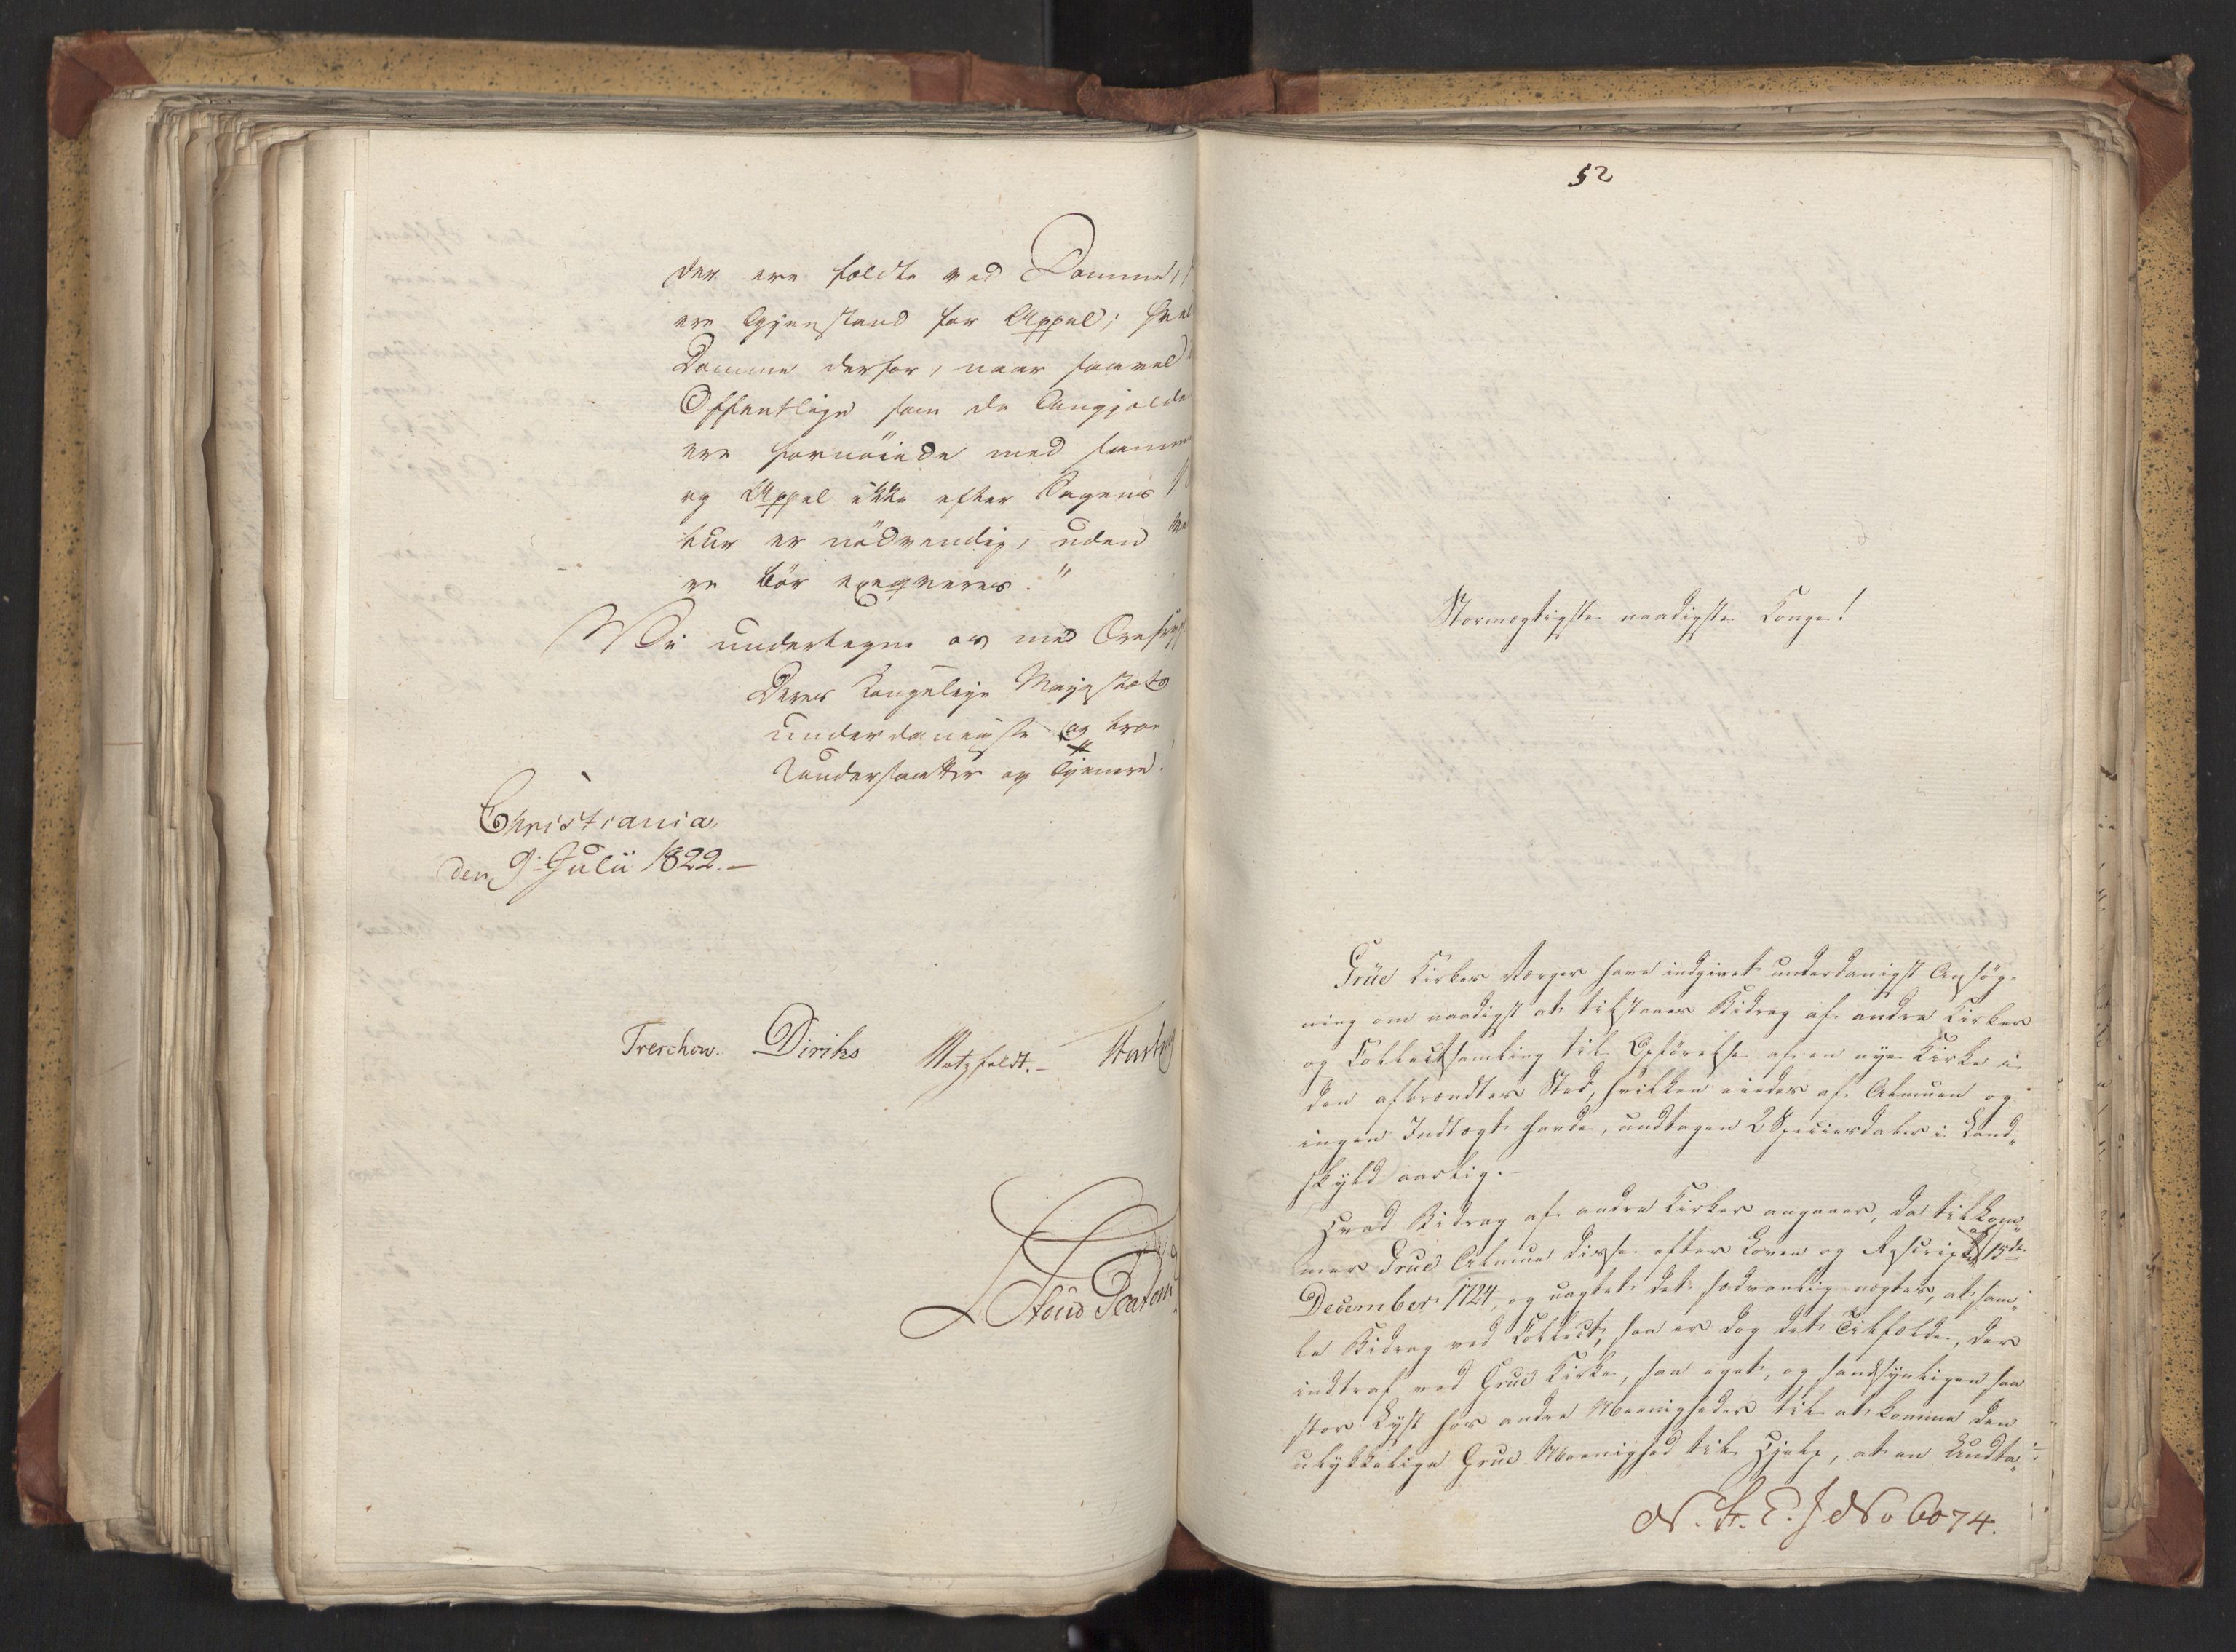 der ere fældte ved Domme,
ere Gjenstand for Appel;
Domme derfor, naar saavel
Offentlige som de Angjeldde
ere fornöiede med samme
og Appel ikke efter Sagens
tur er nödvendig, uden
re bör exeqveres."
Vi undertegne os med Ærefrygt
Deres Kongelige Majestæts
underdanigste og troe
Undersaatter og Tjenere.
Christiania,
den 9de Julii 1822.
Treschow. Diriks Motzfeldt.
52
Stormægtigste naadigste Konge!
Grue Kirkes Værger have indgivet underdanigst Ansög-
ning om naadigst at tilstaaes Bidrag af andre Kirker
og Collectsamling til Opförelse af en nye Kirke i
den afbrændtes Sted, hvilken eiedes af Almuen og
ingen Indtægt havde, undtagen 2 Speciesdaler i Land„
skyld aarlig.
Hvad Bidrag af andre Kirker angaaer, da tilkom„
mer Grue Almue disse efter Loven og Rescript af 15de
December 1724, og uagtet det sædvanlig nægtes, at sam„
le Bidrag ved Collect, saa er dog det Tilfælde, der
indtraf med Grue Kirke, saa eget, og sandsynligen saa
stor Lyst hos andre Meenigheder til at komme den
ulykkelige Grue Meenighed til Hjelp, at en Undta„
N. St. E. J No 6074.